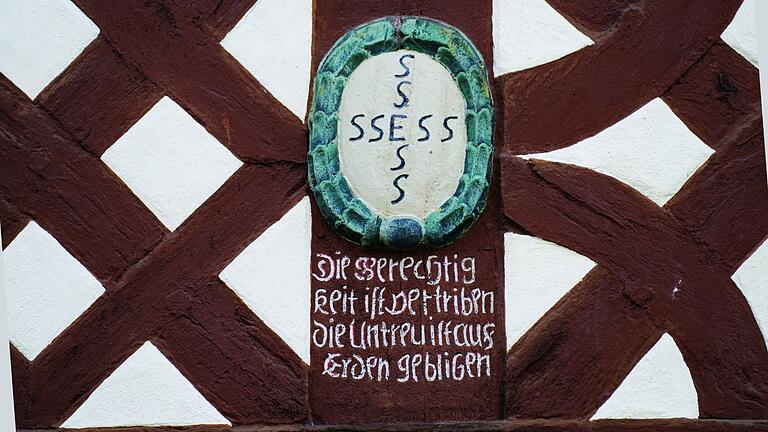 S
S
SSESS
S
S
Die Gerechtig
keit ist vertriben
die Untreu ist aus
Erden gebligen